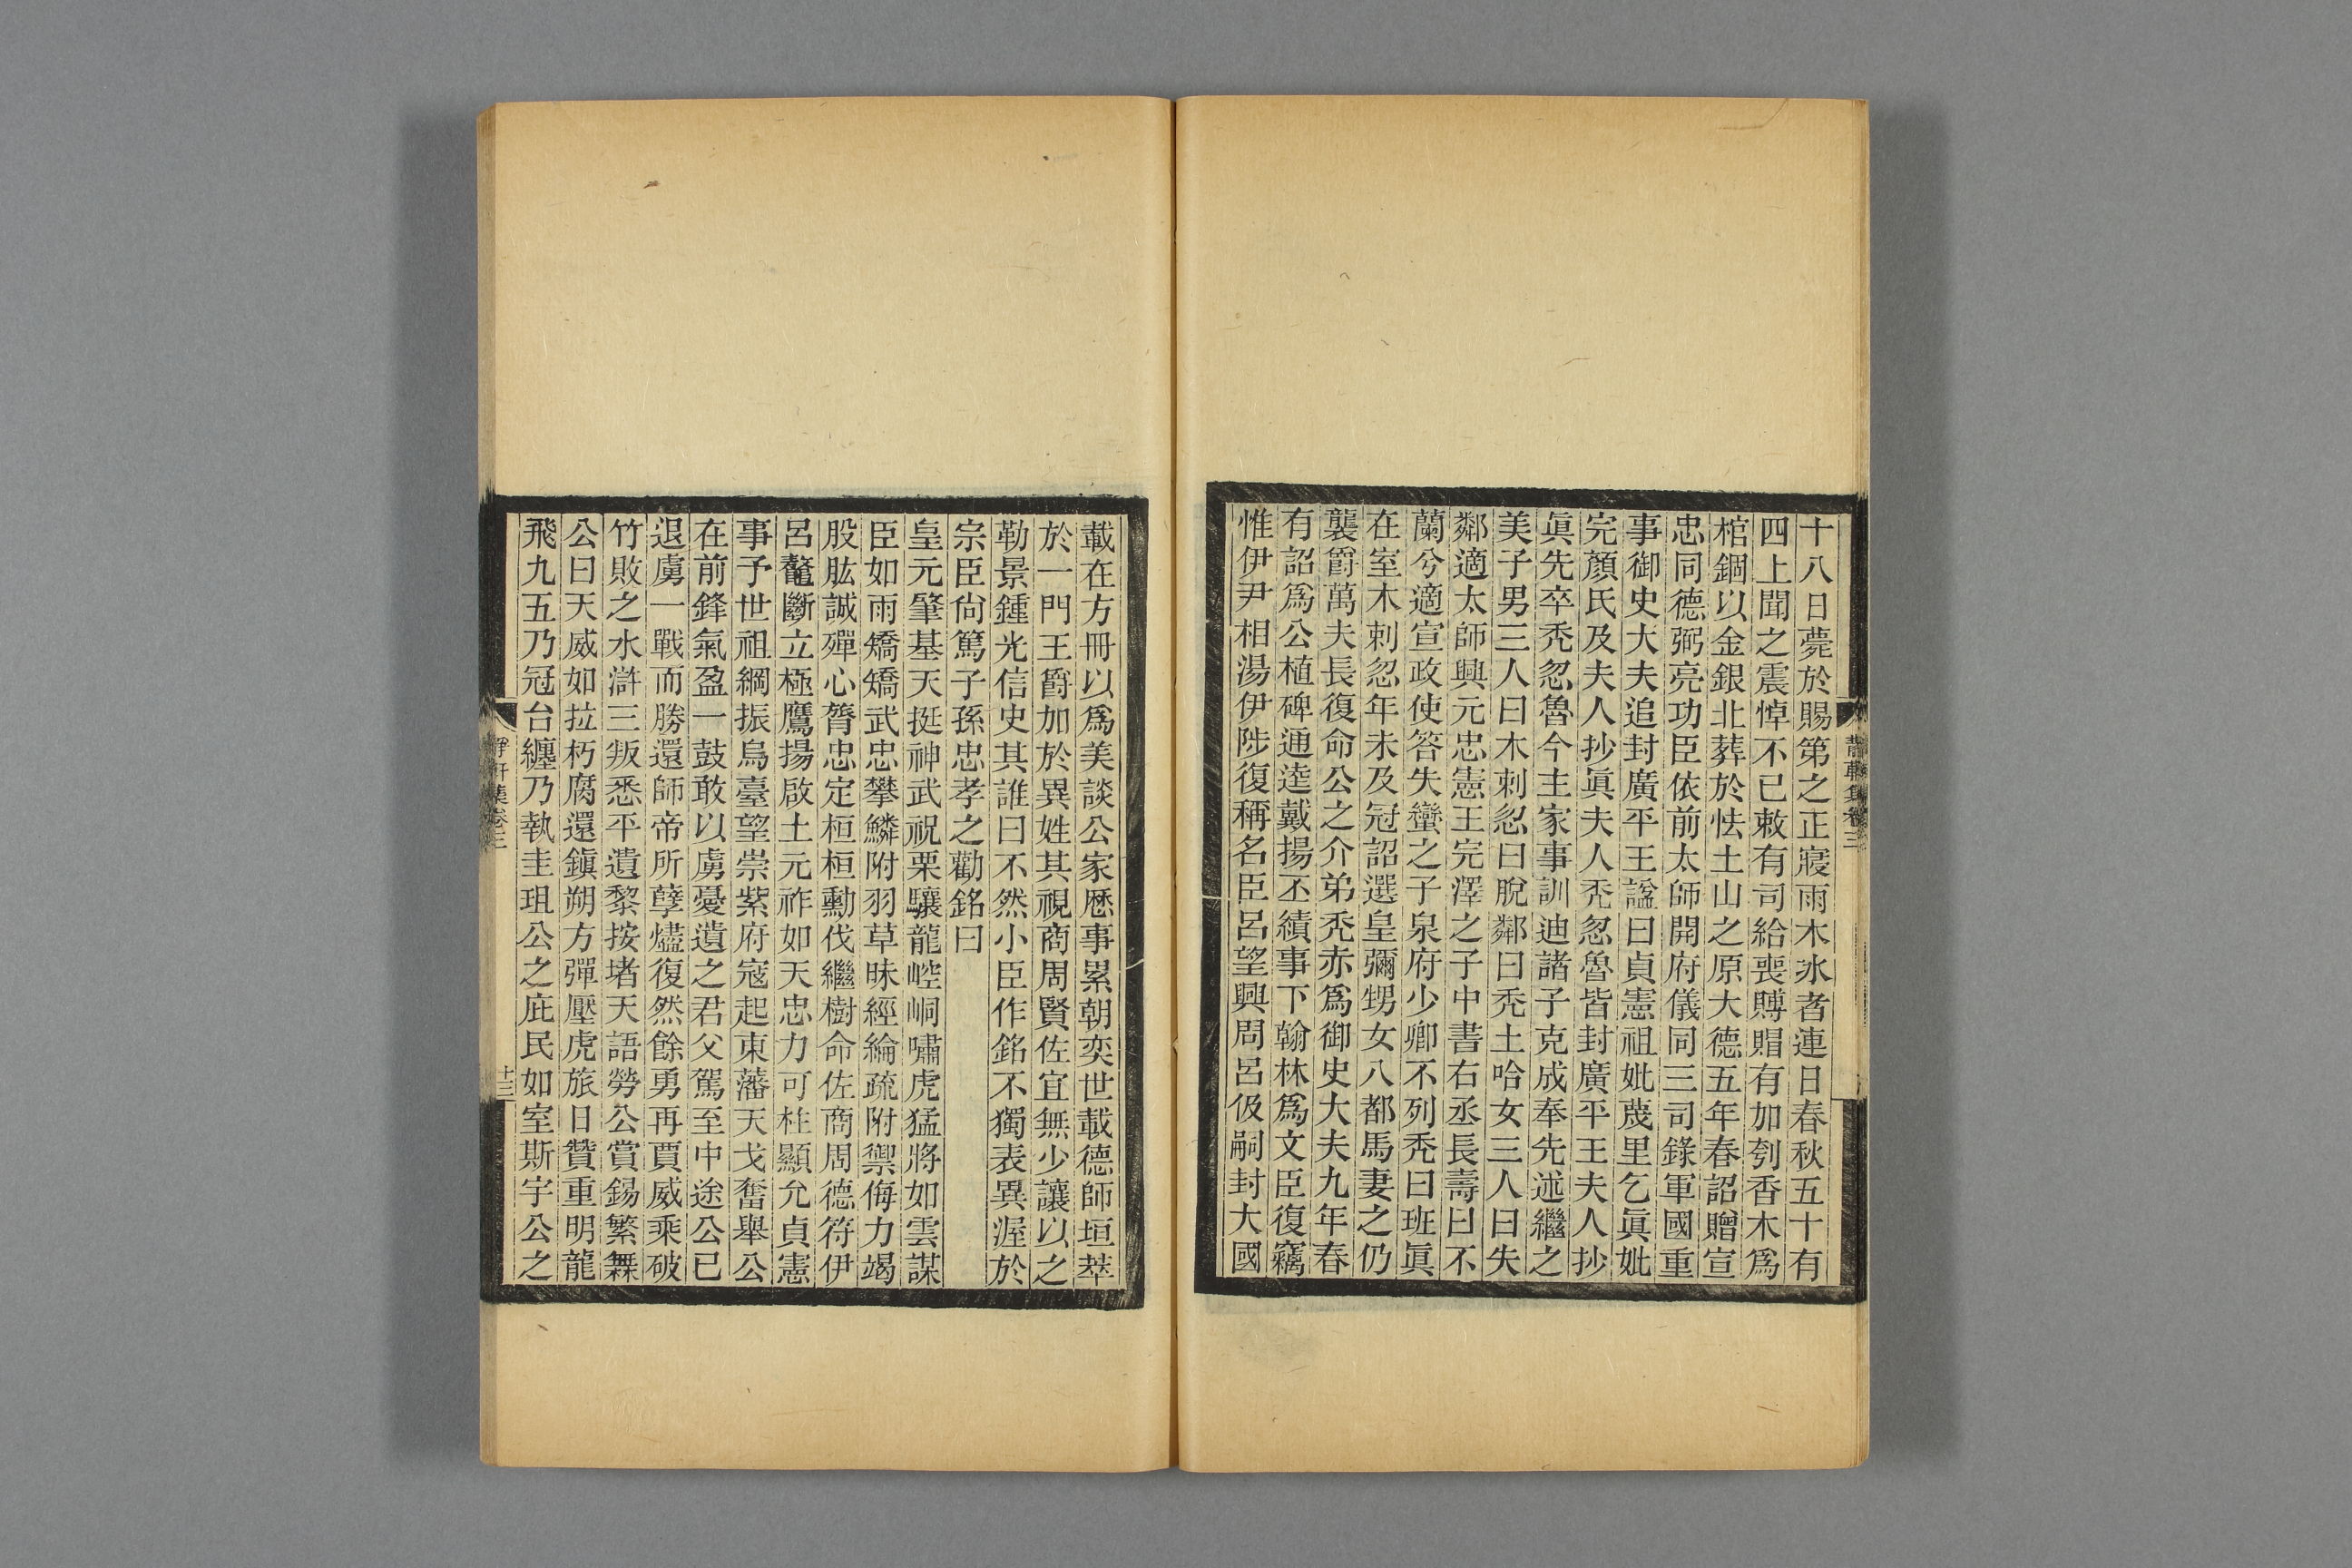 十八日薨於賜第之正寢雨木冰者連日春秋五十有
四上聞之震悼不已敕有司給喪賻賵有加刳香木爲
棺錮以金銀北葬於怯土山之原大德五年春詔贈宣
忠同德弼亮功臣依前太師開府儀同三司錄軍國重
事御史大夫追封廣平王諡曰貞憲祖妣蔑里乞眞妣
完顏氏及夫人抄眞夫人禿忽魯皆封廣平王夫人抄
眞先卒禿忽魯今主家事訓迪諸子克成奉先述繼之
美子男三人曰木剌忽曰脫鄰曰禿土哈女三人曰失
鄰適太師興元忠憲王完澤之子中書右丞長壽曰不
蘭兮適宣政使答失蠻之子泉府少卿不列禿曰班眞
在室木剌忽年未及冠詔選皇彌甥女八都馬妻之仍
襲爵萬夫長復命公之介弟禿赤爲御史大夫九年春
有詔爲公植碑通逵戴揚丕績事下翰林爲文臣復竊
惟伊尹相湯伊陟復稱名臣呂望興周呂伋嗣封大國
靜軒集卷三
載在方冊以爲美談公家歷事累朝奕世載德師垣萃
於一門王爵加於異姓其視商周賢佐宜無少讓以之
勒景鍾光信史其誰曰不然小臣作銘不獨表異渥於
宗臣尙篤子孫忠孝之勸銘曰
皇元肇基天挺神武祝栗驤龍崆峒嘯虎猛將如雲謀
臣如雨矯矯武忠攀鱗附羽草昧經綸疏附禦侮力竭
股肱誠殫心膂忠定桓桓勳伐繼樹命佐商周德符伊
呂鼇斷立極鷹揚啟土元祚如天忠力可柱顯允貞憲
事予世祖綱振烏臺望崇紫府寇起東藩天戈奮舉公
在前鋒氣盈一鼓敢以虜憂遺之君父駕至中途公已
退虜一戰而勝還師帝所孽燼復然餘勇再賈威乘破
竹敗之水滸三叛悉平遺黎按堵天語勞公賞錫繁釐
公曰天威如拉朽腐還鎭朔方彈壓虎旅日贊重明龍
飛九五乃冠台纏乃執圭珇公之庇民如室斯宇公之
靜軒集卷三
十三